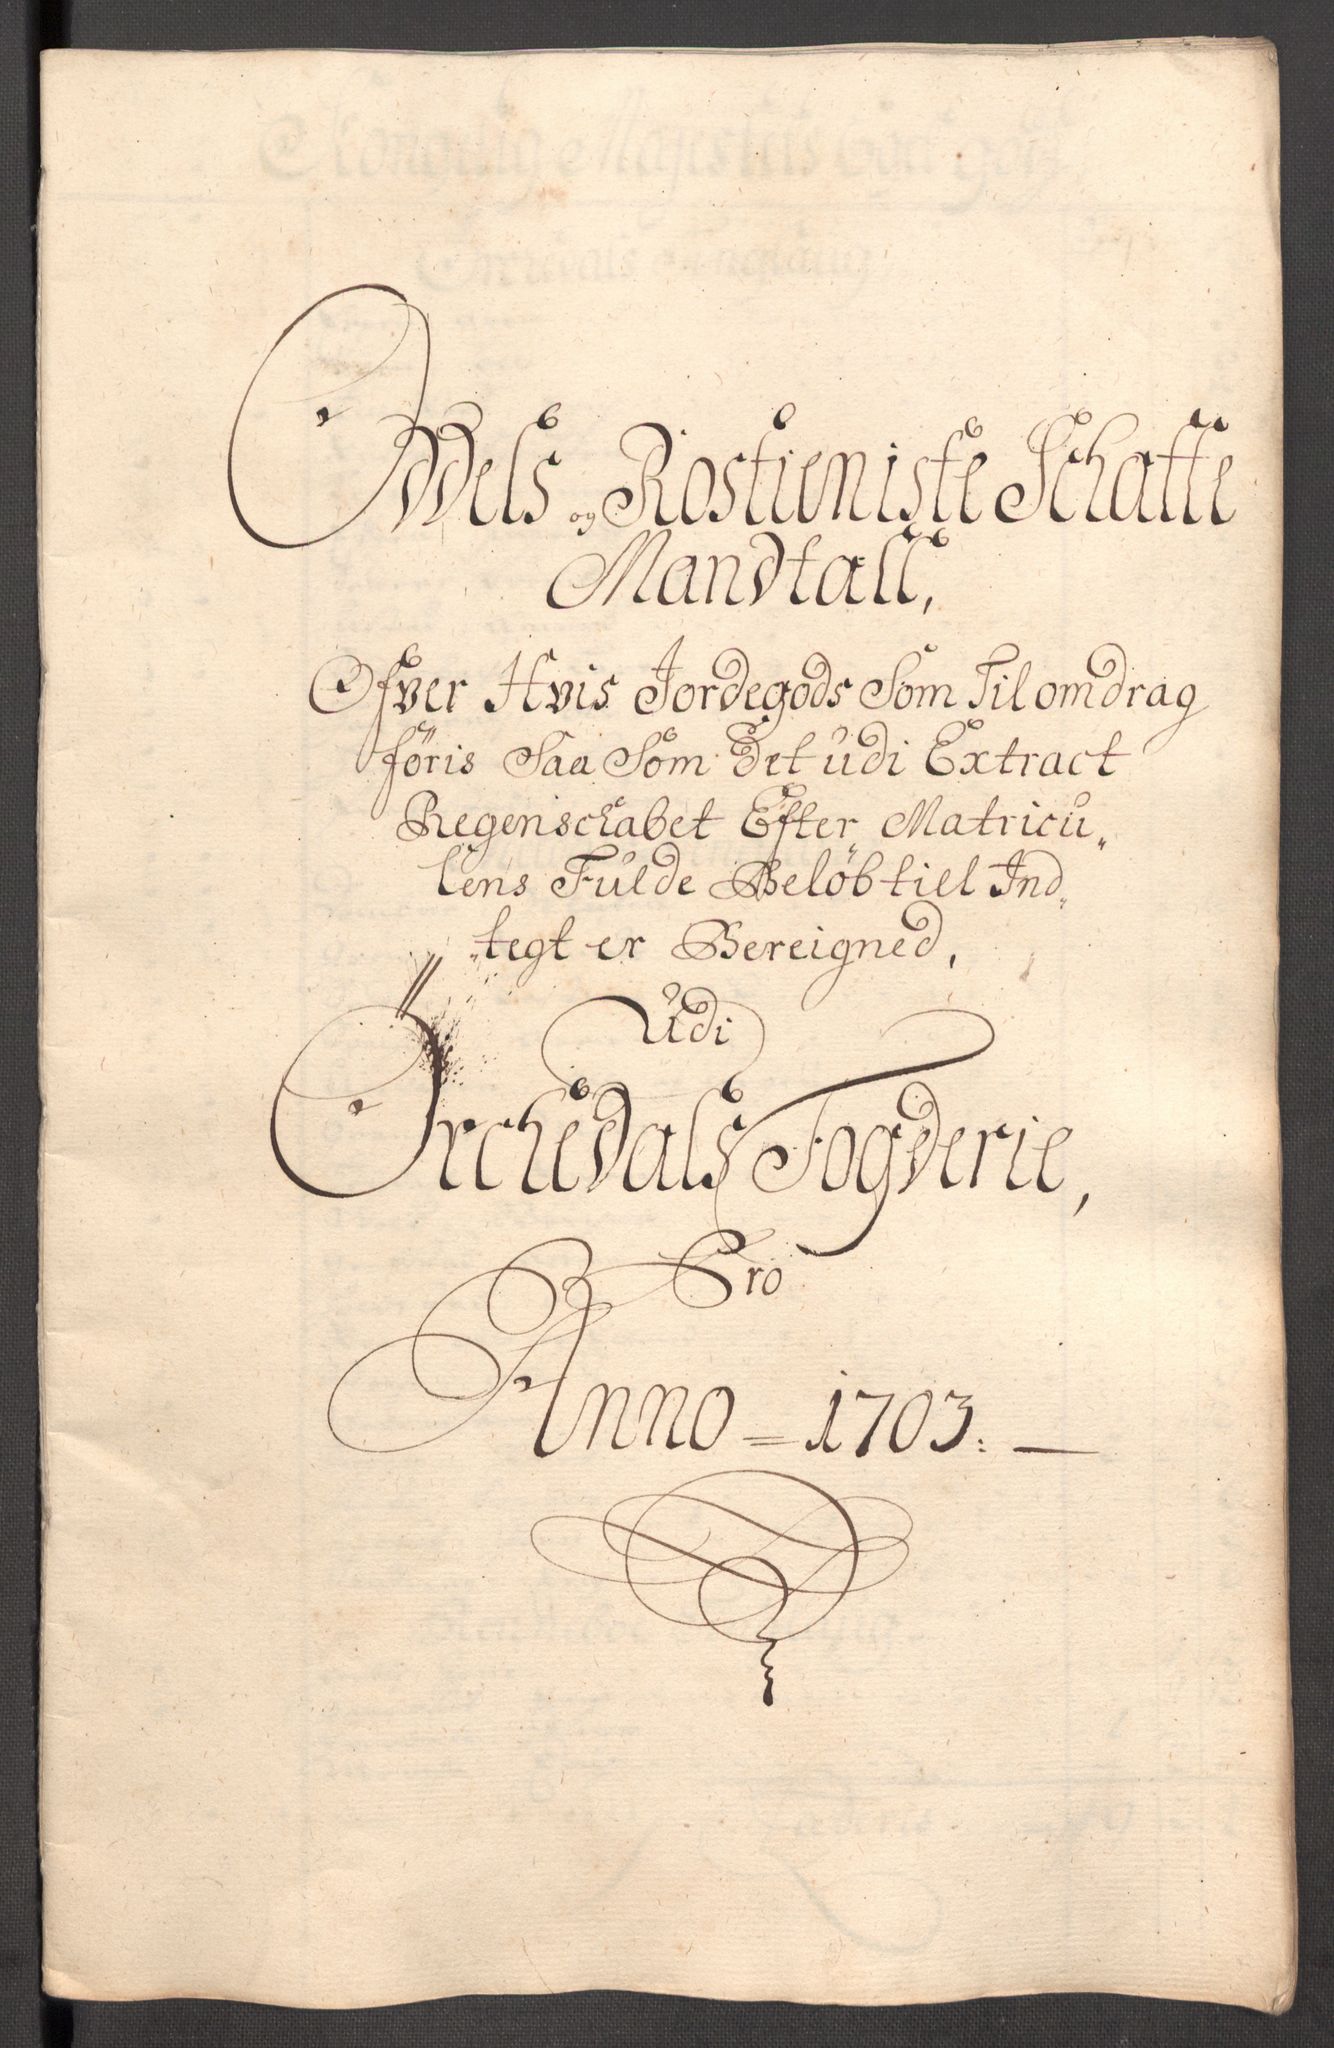 Oddels og Rostieniste Schatte
Mandtall,
Ofver Hvis Jordegods Som Til omdrag
föris Saa Som det udi Extract
Regenschabet Efter Matricu„
lens Fulde Beløb tiel Ind„
„tegt er Bereigned,
Udi
Örchedals Fogderie,
Pro
Anno = 1703. —